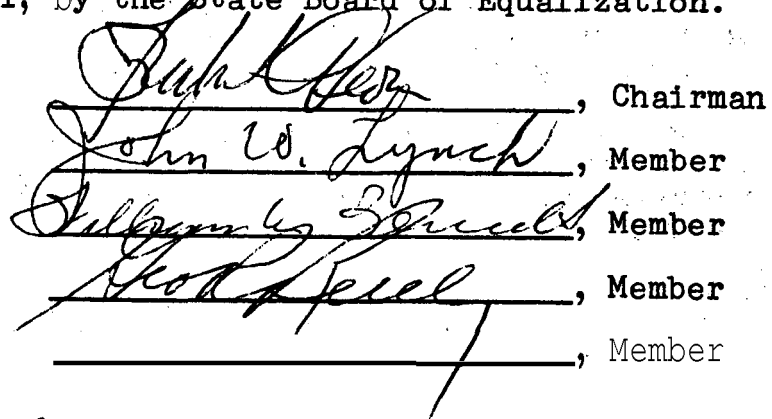 by the State Board of Equalization.
, Chairman
John W. Lynch, Member
, Member
Geo R. Reilly, Member
, Member